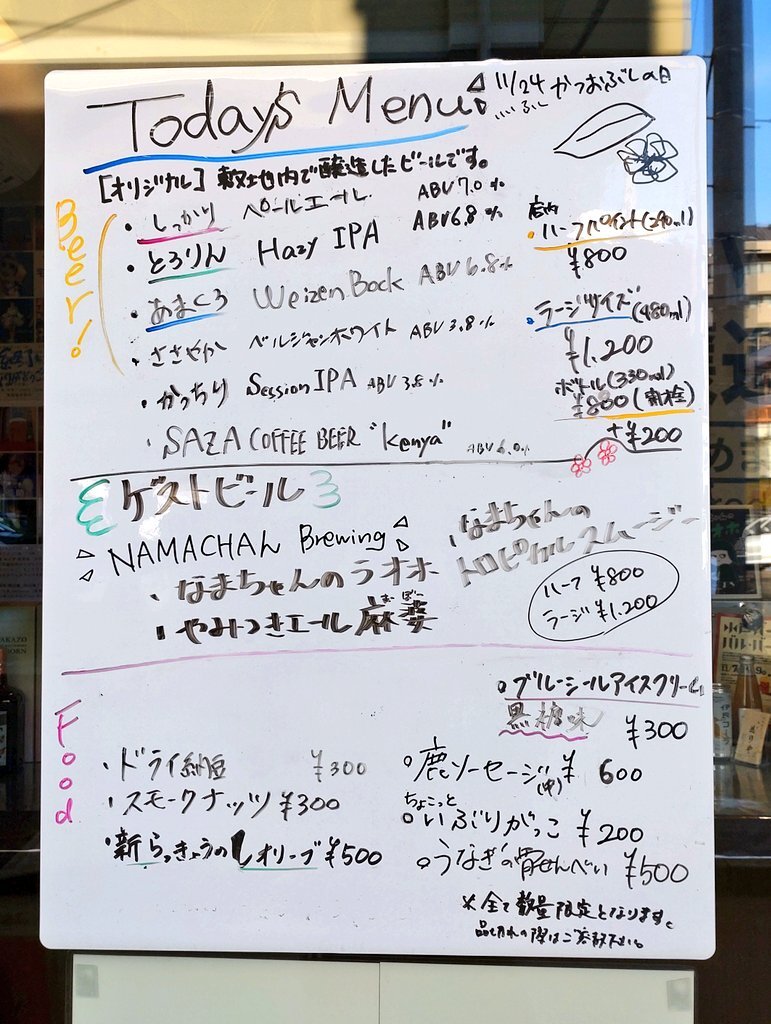 Today's Menu
11/24 かつおぶしの日
いいふし
[オリジナル] 敷地内で醸造したビールです。
Beer!
・しっかり ペールエール ABV 7.0%
・とろりん Hazy IPA ABV 6.8%
・あまくろ Weizen Bock ABV 6.8%
・ささやか ベルジャンホワイト ABV 3.8%
・かっちり Session IPA ABV 3.8%
・SAZA COFFEE BEER "Kenya" ABV 6.0%
店内
・ハーフパイント(290ml)
¥800
・ラージサイズ(480ml)
¥1,200
ボトル(330ml)
¥800(開栓)
+¥200
ゲストビール
NAMACHAん Brewing
・なまちゃんのラオホ
・やみつきエール麻婆
・なまちゃんの
トロピカルスムージー
ハーフ ¥800
ラージ ¥1,200
Food
・ドライ納豆 ¥300
・スモークナッツ ¥300
・新らっきょうのしオリーブ ¥500
○ブルーシールアイスクリーム
黒糖味 ¥300
○鹿ソーセージ(中) ¥600
ちょこっと
○いぶりがっこ ¥200
○うなぎの骨せんべい ¥500
※全て数量限定となります。
品切れの際はご容赦下さい。